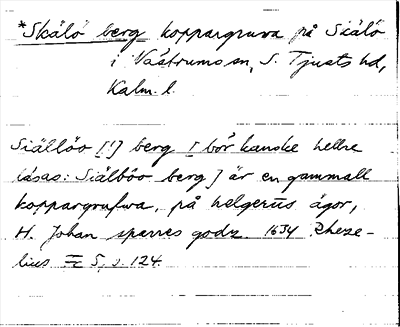 *Skälö berg koppargruva på Siälö
i Västrums sn, S. Tjusts hd,
Kalm. l.
Siällöo [!] berg [bör kanske hellre
läsas: Siälböo berg] är en gammall
koppargrufwa, på helgerus ägor,
H. Johan sparres godz 1634 Rheze-
lius = S, s. 124.